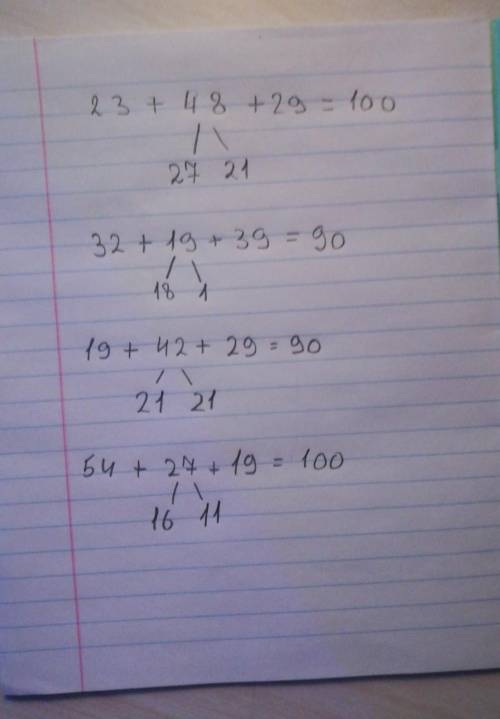 23 + 48 + 29 = 100
27 21
32 + 19 + 39 = 90
18 1
19 + 42 + 29 = 90
21 21
54 + 27 + 19 = 100
16 11